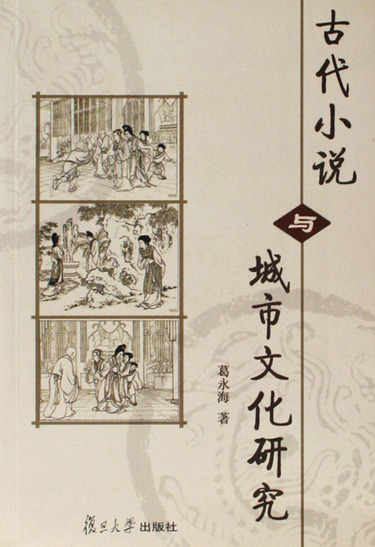 古代小说
与
城市文化研究
葛永海 著
復旦大學出版社